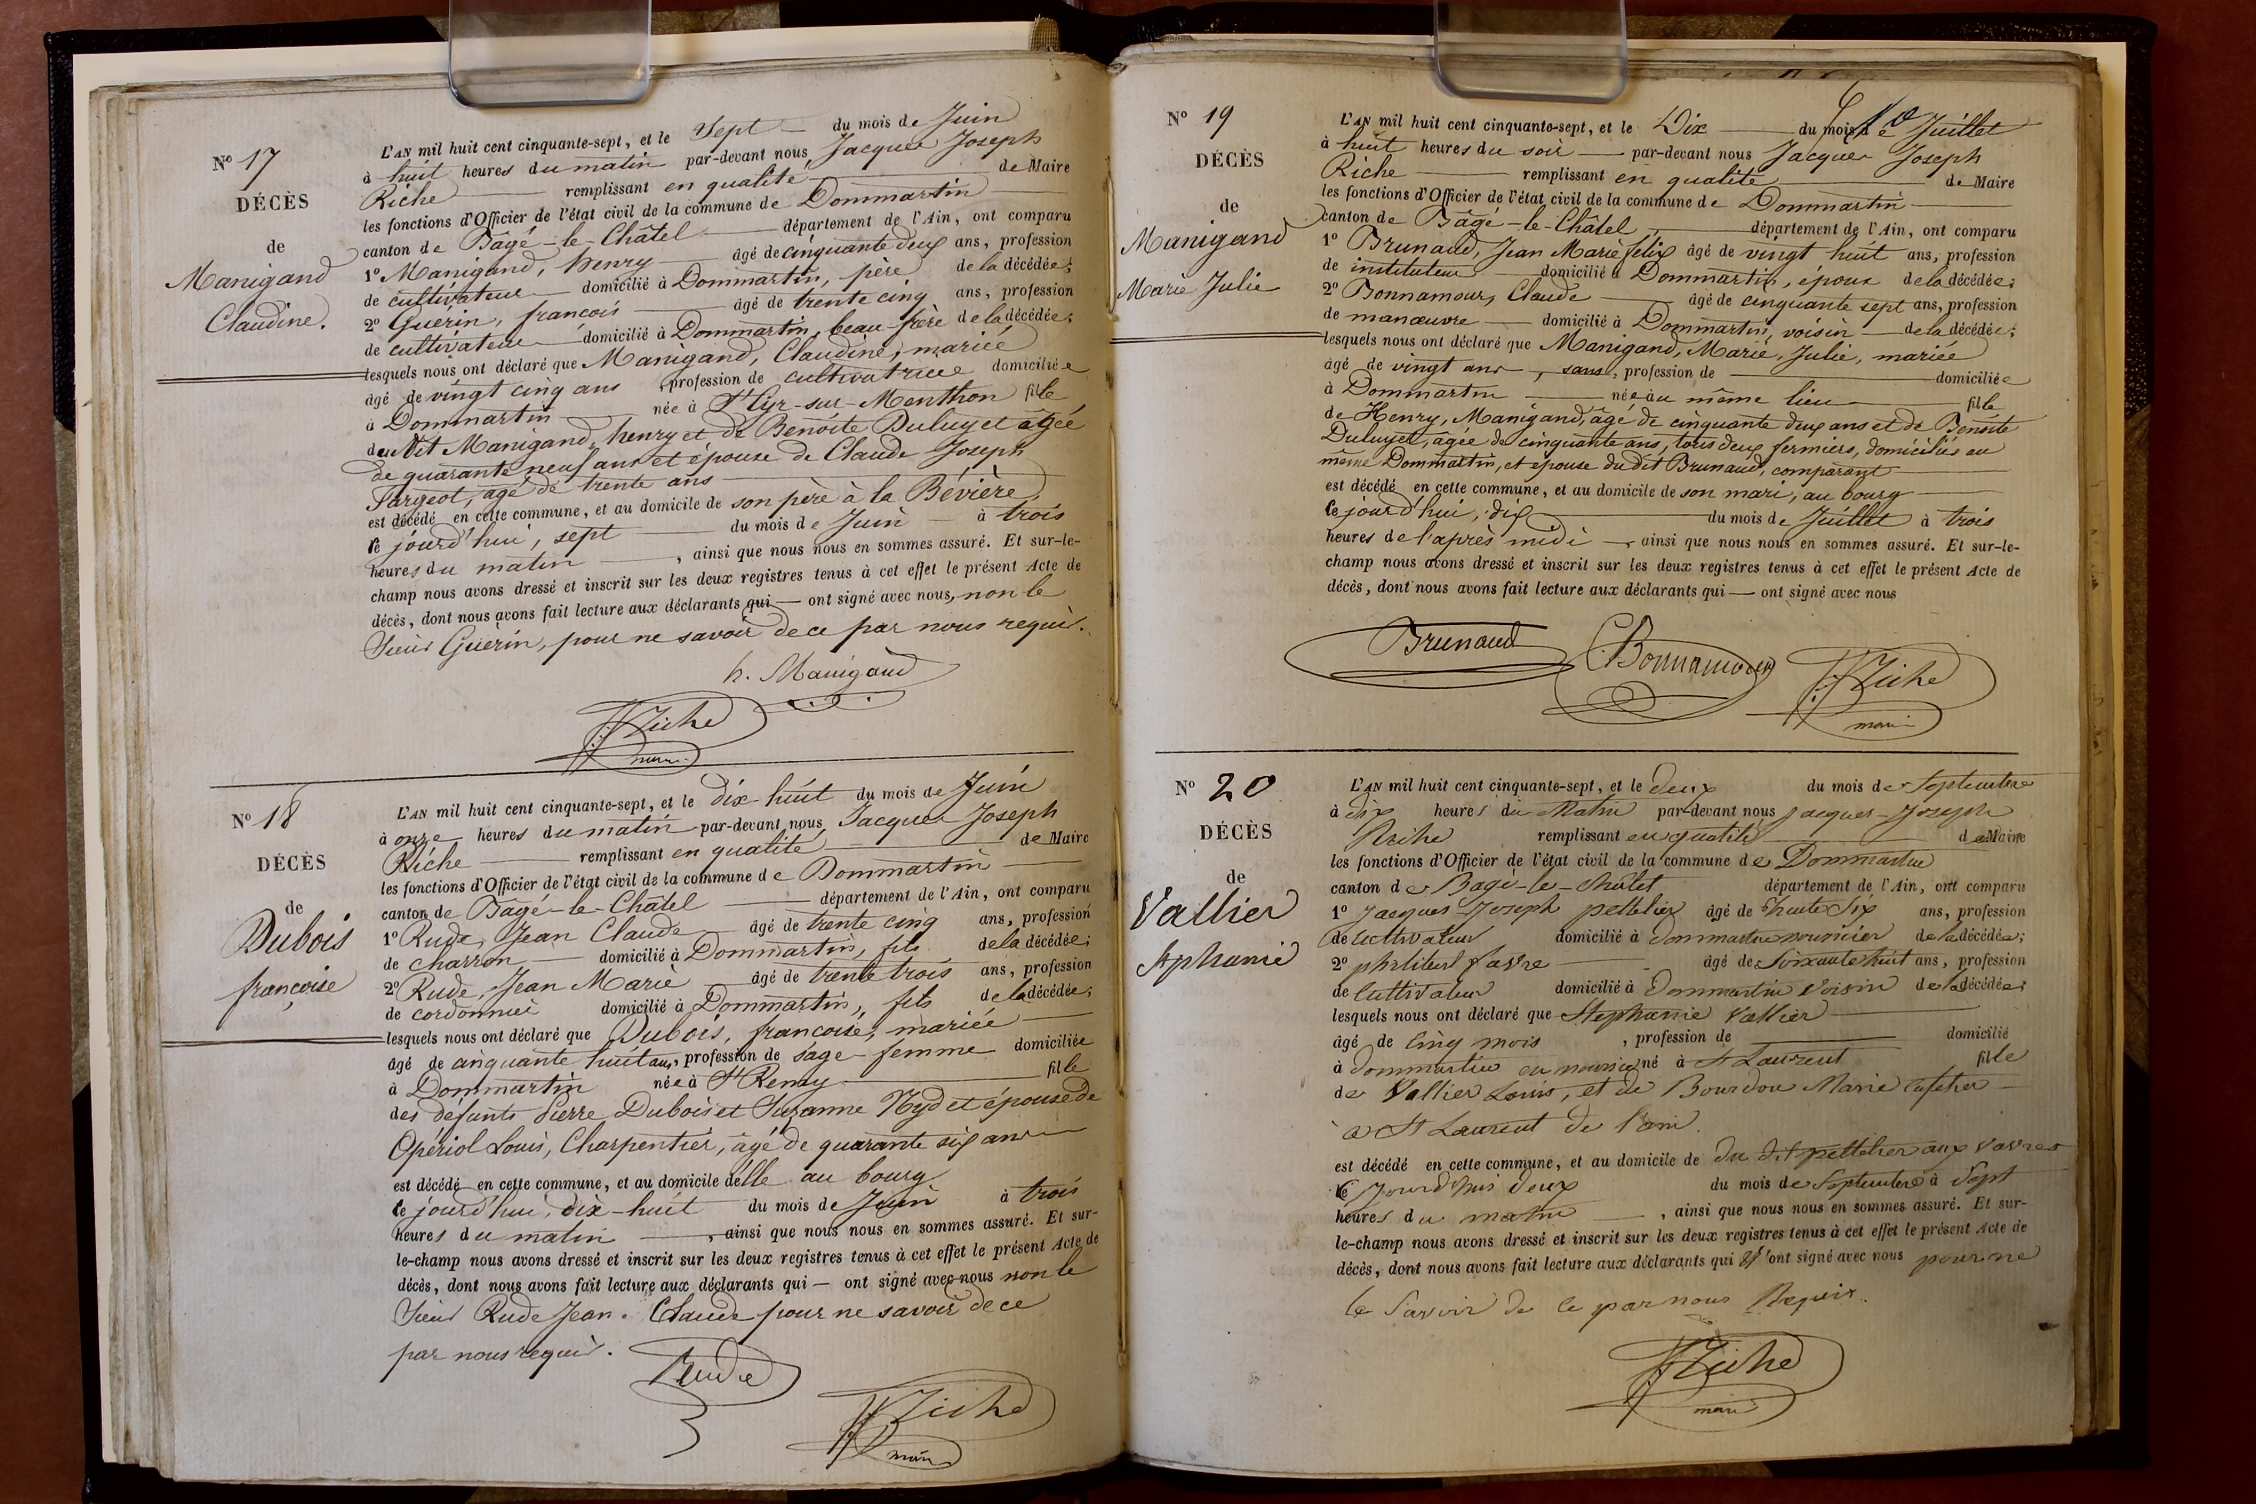 N° 17
DÉCÈS
de
Manigand
Claudine.
L'AN mil huit cent cinquante-sept, et le Sept — du mois de Juin
à huit heures du matin par-devant nous Jacques Joseph
Riche — remplissant en qualité — de Maire
les fonctions d'Officier de l'état civil de la commune de Dommartin
canton de Bâgé-le-Châtel — département de l'Ain, ont comparu
1° Manigand, henry — âgé de cinquante deux ans, profession
de cultivateur — domicilié à Dommartin, père de la décédée;
2° Guérin, françois — âgé de trente cinq ans, profession
de cultivateur domicilié à Dommartin, beau-frère de la décédée;
lesquels nous ont déclaré que Manigand, Claudine, mariée
âgé de vingt cinq ans, profession de cultivatrice domiciliée
à Dommartin — née à St Cyr-sur-Menthon fille
du dit Manigand, henry et de Benoite Duluyet âgée
de quarante neuf ans et épouse de Claude Joseph
Fargeot, âgé de trente ans —
est décédé en cette commune, et au domicile de son père à la Bévière,
le jourd'hui, sept — du mois de Juin — à trois
heures du matin —, ainsi que nous nous en sommes assuré. Et sur-le-
champ nous avons dressé et inscrit sur les deux registres tenus à cet effet le présent Acte de
décès, dont nous avons fait lecture aux déclarants qui — ont signé avec nous, non le
Sieur Guérin, pour ne savoir de ce par nous requis.
h. Manigand
Riche
maire
N° 18
DÉCÈS
de
Dubois
françoise
L'AN mil huit cent cinquante-sept, et le dix-huit du mois de Juin
à onze heures du matin par-devant nous Jacques Joseph
Riche — remplissant en qualité — de Maire
les fonctions d'Officier de l'état civil de la commune de Dommartin —
canton de Bâgé-le-Châtel — département de l'Ain, ont comparu
1° Rude, Jean Claude âgé de trente cinq ans, profession
de charron — domicilié à Dommartin, fils de la décédée;
2° Rude, Jean Marie âgé de trente trois ans, profession
de cordonnier domicilié à Dommartin, fils de la décédée;
lesquels nous ont déclaré que Dubois, françoise, mariée —
âgé de cinquante huit ans, profession de sage-femme domiciliée
à Dommartin née à St Remy — fille
des défunts Pierre Dubois et Suzanne Nyd et épouse de
Opériol Louis, Charpentier, âgé de quarante six ans —
est décédé en cette commune, et au domicile d'elle au bourg
le jourd'hui, dix-huit du mois de Juin à trois
heures du matin —, ainsi que nous nous en sommes assuré. Et sur-
le-champ nous avons dressé et inscrit sur les deux registres tenus à cet effet le présent Acte de
décès, dont nous avons fait lecture aux déclarants qui — ont signé avec nous non le
Sieur Rude Jean-Claude pour ne savoir de ce
par nous requis.
Rude
Riche
maire
N° 19
DÉCÈS
de
Manigand
Marie Julie
10
L'AN mil huit cent cinquante-sept, et le Dix — du mois de Juillet
à huit heures du soir — par-devant nous Jacques Joseph
Riche — remplissant en qualité — de Maire
les fonctions d'Officier de l'état civil de la commune de Dommartin —
canton de Bâgé-le-Châtel, — département de l'Ain, ont comparu
1° Brunaud, Jean Marie félix âgé de vingt huit ans, profession
de instituteur domicilié à Dommartin, époux de la décédée;
2° Bonnamour, Claude — âgé de cinquante sept ans, profession
de manœuvre — domicilié à Dommartin, voisin — de la décédée;
lesquels nous ont déclaré que Manigand, Marie, Julie, mariée
âgé de vingt ans, sans, profession de — domiciliée
à Dommartin — née au même lieu — fille
de Henry, Manigand, âgé de cinquante deux ans et de Benoite
Duluyet, âgée de cinquante ans, tous deux fermiers, domiciliés au
même Dommartin, et épouse du dit Brunaud, comparant —
est décédé en cette commune, et au domicile de son mari, au bourg —
le jourd'hui, dix — du mois de Juillet à trois
heures de l'après midi —, ainsi que nous nous en sommes assuré. Et sur-le-
champ nous avons dressé et inscrit sur les deux registres tenus à cet effet le présent Acte de
décès, dont nous avons fait lecture aux déclarants qui — ont signé avec nous
Brunaud
C. Bonnamour
Riche
maire
N° 20
DÉCÈS
de
Vallier
Stéphanie
L'AN mil huit cent cinquante-sept, et le deux du mois de Septembre
à dix heures du Matin par-devant nous Jacques-Joseph
Riche remplissant en qualité — de Maire
les fonctions d'Officier de l'état civil de la commune de Dommartin
canton de Bagé-le-Châtel département de l'Ain, ont comparu
1° Jacques Joseph pelletier âgé de trente Six ans, profession
de Cultivateur domicilié à dommartin nourricier de la décédée;
2° philibert favre — âgé de Soixante huit ans, profession
de Cultivateur domicilié à Dommartin Voisin de la décédée;
lesquels nous ont déclaré que Stephanie Vallier —
âgé de Cinq mois, profession de — domicilié
à dommartin en nourrice né à St Laurent fille
de Vallier Louis, et de Bourdon Marie Cafetier —
a St Laurent de l'ain.
est décédé en cette commune, et au domicile de du dit pelletier aux Vavres
le Jourd'hui deux du mois de Septembre à Sept
heures du matin —, ainsi que nous nous en sommes assuré. Et sur-
le-champ nous avons dressé et inscrit sur les deux registres tenus à cet effet le présent Acte de
décès, dont nous avons fait lecture aux déclarants qui n'ont signé avec nous pour ne
le Savoir de ce par nous Requis.
Riche
maire